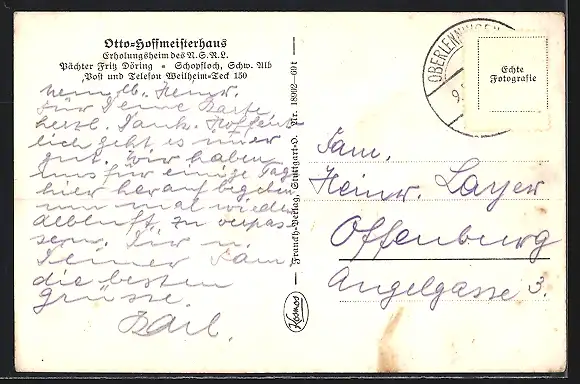 Otto-Hoffmeisterhaus
Erholungsheim des N.S.R.L.
Pächter Fritz Döring • Schopfloch, Schw. Alb
Post und Telefon Weilheim-Teck 150
Mein lb. Heinr.
für Deine Karte
herzl. Dank. Hoffent-
lich geht es immer
gut. Wir haben
uns für einige Tage
hier herauf begeben
um mal wieder
Albluft zu
Dir u.
Deiner Fam.
die besten
Grüsse.
Karl.
Franckh-Verlag, Stuttgart-O. Nr. 18002-60t
Kosmos
OBERLENNINGEN
9.
Echte
Fotografie
Fam.
Heinr. Layer
Offenburg
Angelgasse 3.